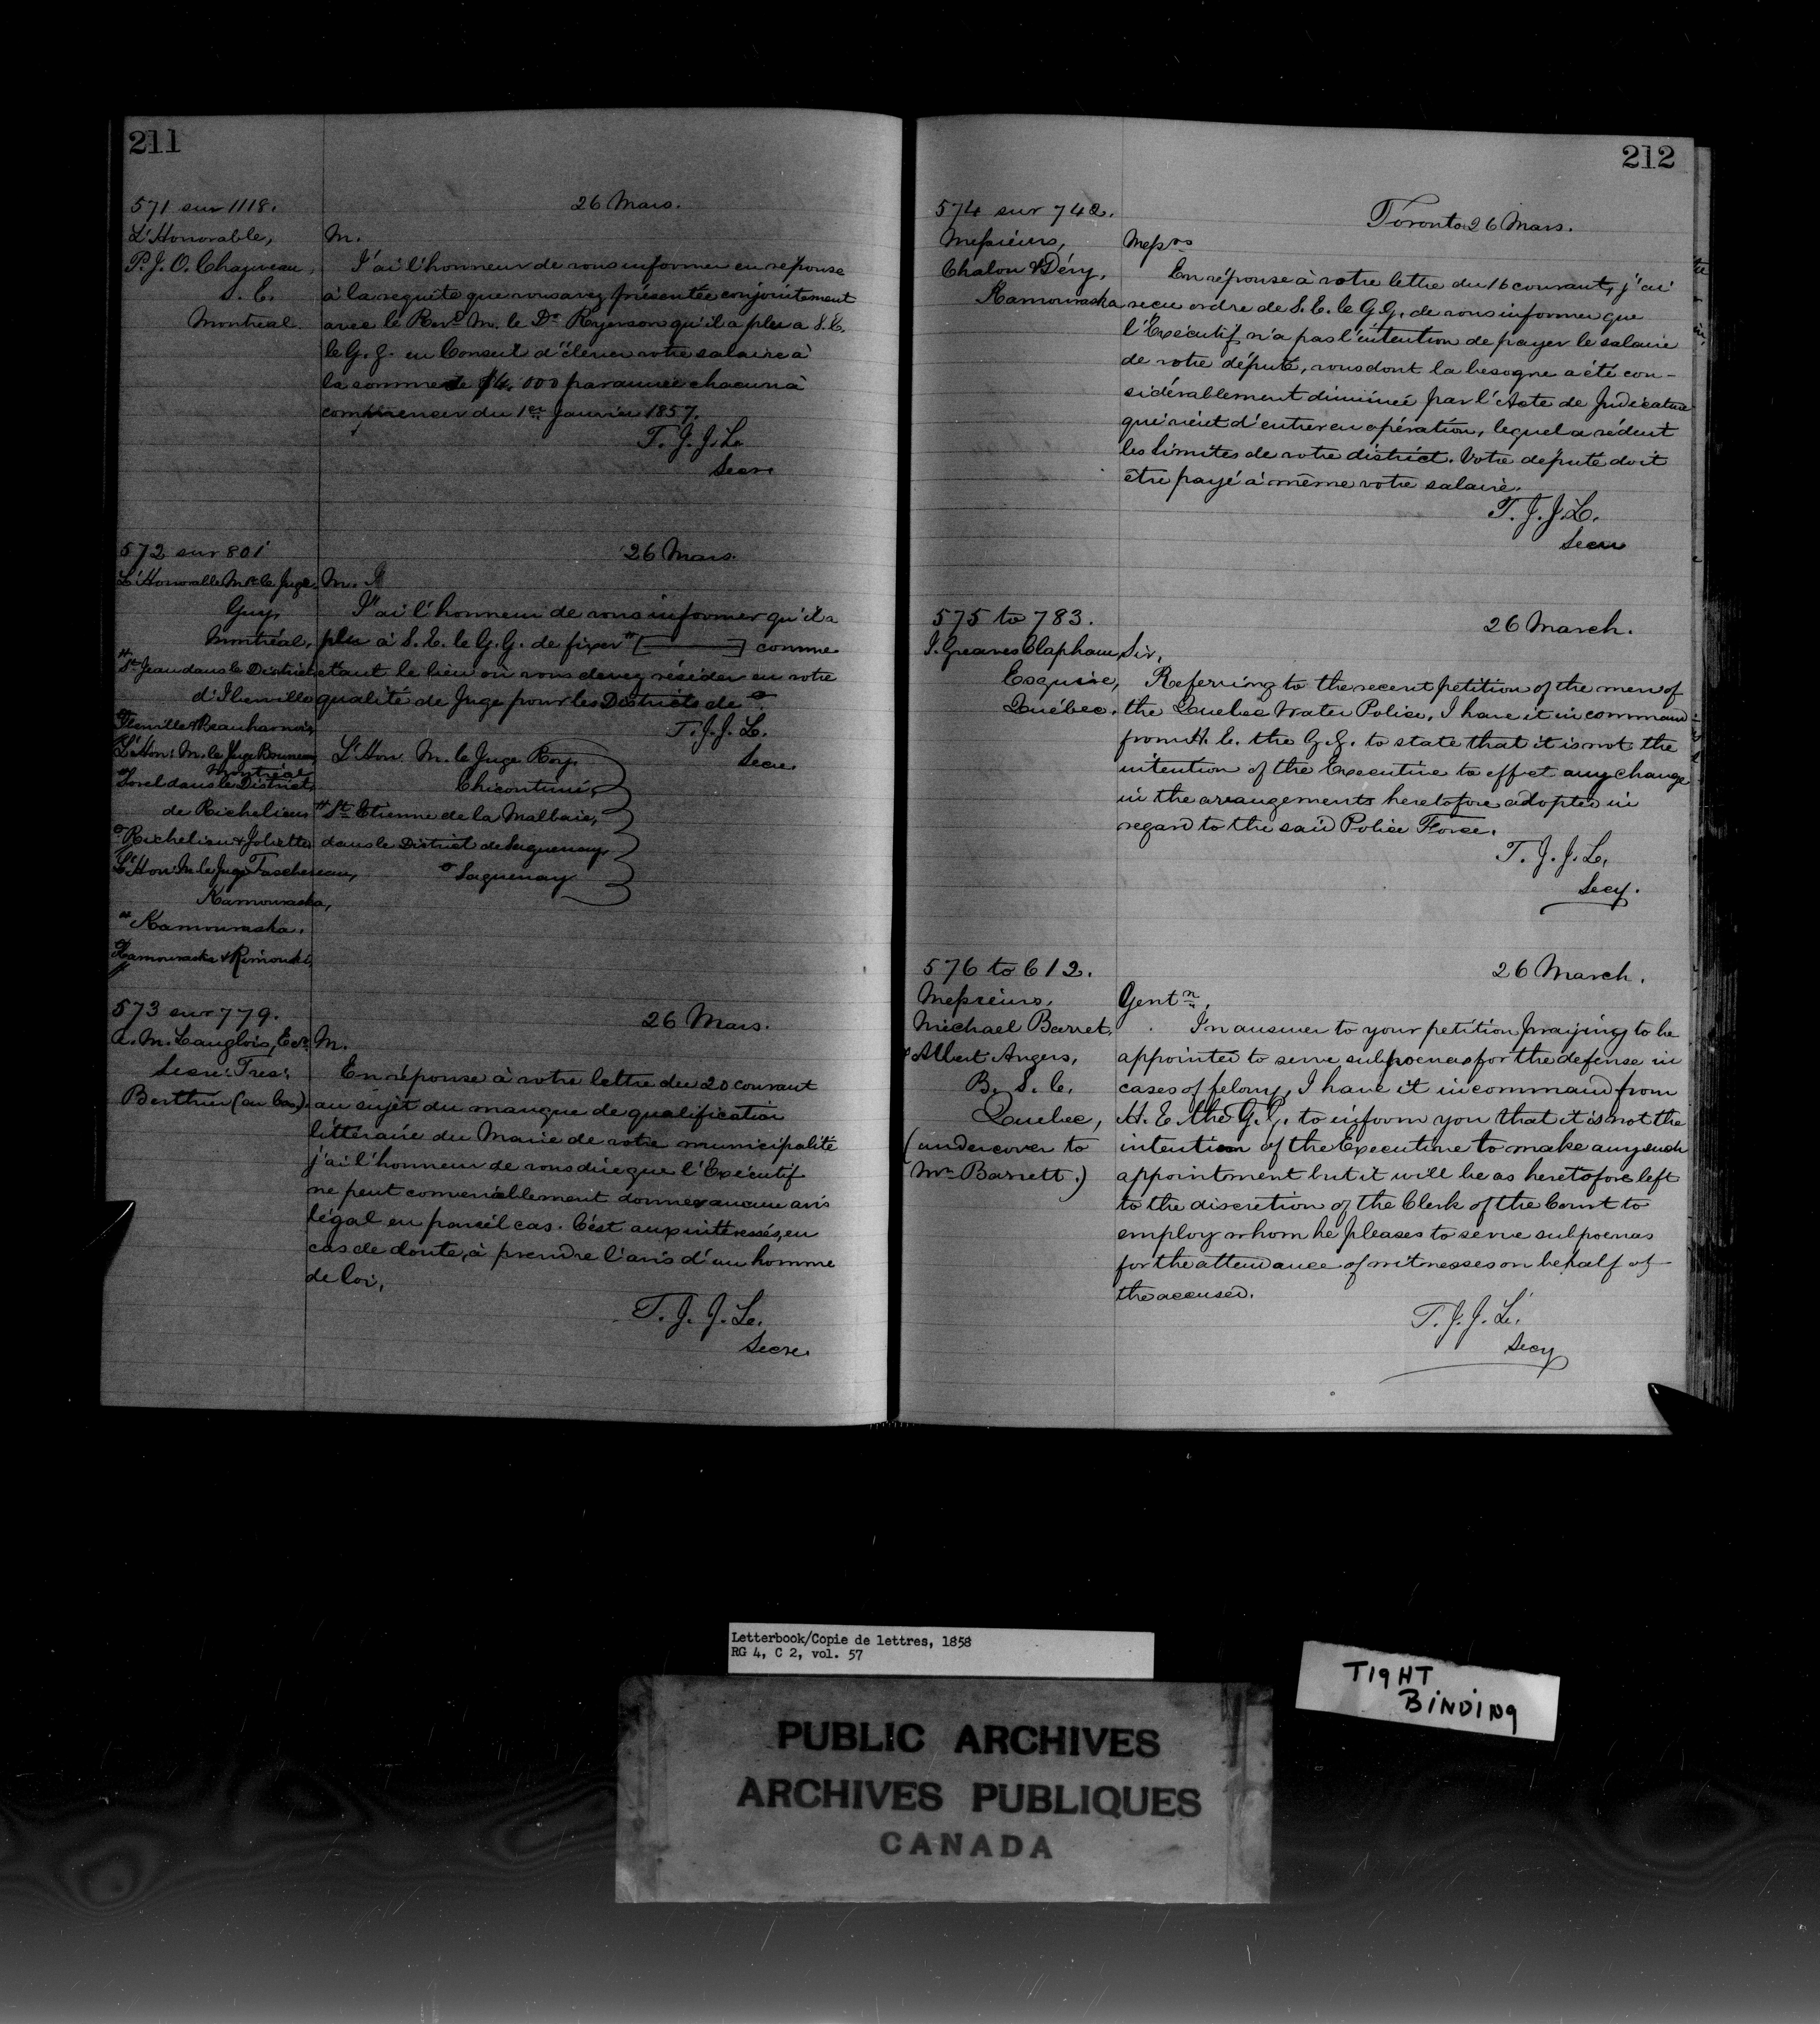 211
571 sur 1118.
26 Mars.
L'Honorable,
P. J. O. Chauveau,
S. E.
Montreal.
M.
J'ai l'honneur de vous informer en reponse
à la requête que vous avez présentée conjointement
avec le Revd. M. le Dr. Ryerson qu'il a plu a S. E.
le G. G. en Conseil d'élever votre salaire à
la somme de $4.000 par année chacun à
commencer du 1er Janvier 1857.
T. J. J. L.
Secre
572 sur 801
26 Mars.
L'Honorable Mr. le Juge
Guy,
Montréal,
# St. Jean dans le District
d'Iberville
Iberville & Beauharnois
L'Hon: M. le Juge Bruneau
Montréal
# Sorel dans le District
de Richelieu
Richelieu & Joliette
L'Hon: M. le Juge Taschereau,
Kamouraska,
# Kamouraska.
Kamouraska & Rimouski,
M.
J'ai l'honneur de vous informer qu'il a
plu à S. E. le G. G. de fixer # [ ] comme
étant le lieu où vous devez résider en votre
qualité de Juge pour les Districts de
T. J. J. L.
Secre.
L'Hon. M. le Juge Roy
Chicoutimi,
# St. Etienne de la Malbaie,
dans le District de Saguenay,
Saguenay
573 sur 779.
26 Mars.
A. M. Langlois, Ecr.
Secre: Tres:
Berthier (en bas).
M.
En réponse à votre lettre du 20 courant
au sujet du manque de qualification
littéraire du Maire de votre municipalité
j'ai l'honneur de vous dire que l'Exécutif
ne peut convenablement donner aucun avis
légal en pareil cas. C'est aux intéressés, en
cas de doute, à prendre l'avis d'un homme
de loi,
T. J. J. L.
Secre.
212
574 sur 742.
Toronto 26 Mars.
Messieurs,
Chalon & Déry,
Kamouraska
Messrs
En réponse à votre lettre du 16 courant, j'ai
recu ordre de S. E. le G. G. de vous informer que
l'Exécutif n'a pas l'intention de payer le salaire
de votre député, vous dont la besogne a été con-
sidérablement diminuée par l'Acte de Judicature
qui vient d'entrer en opération, lequel a réduit
les limites de votre district. Votre député doit
être payé à même votre salaire.
T. J. J. L.
Secre
575 to 783.
26 March.
J. Greaves Clapham
Esquire,
Québec.
Sir,
Referring to the recent petition of the men of
the Quebec Water Police, I have it in command
from H. E. the G. G. to state that it is not the
intention of the Executive to effect any change
in the arrangements heretofore adopted in
regard to the said Police Force.
T. J. J. L.
Secy.
576 to 612.
26 March.
Messieurs,
Michael Barret
& Albert Angers,
B. S. C.
Quebec,
(under cover to
Mr. Barrett.)
Gentn.,
In answer to your petition praying to be
appointed to serve subpoenas for the defense in
cases of felony, I have it in command from
H. E. the G. G. to inform you that it is not the
intention of the Executive to make any such
appointment but it will be as heretofore left
to the discretion of the Clerk of the Court to
employ whom he pleases to serve subpoenas
for the attendance of witnesses on behalf of
the accused.
T. J. J. L.
Secy
Letterbook/Copie de lettres, 1858
RG 4, C 2, vol. 57
TIGHT
BINDING
PUBLIC ARCHIVES
ARCHIVES PUBLIQUES
CANADA